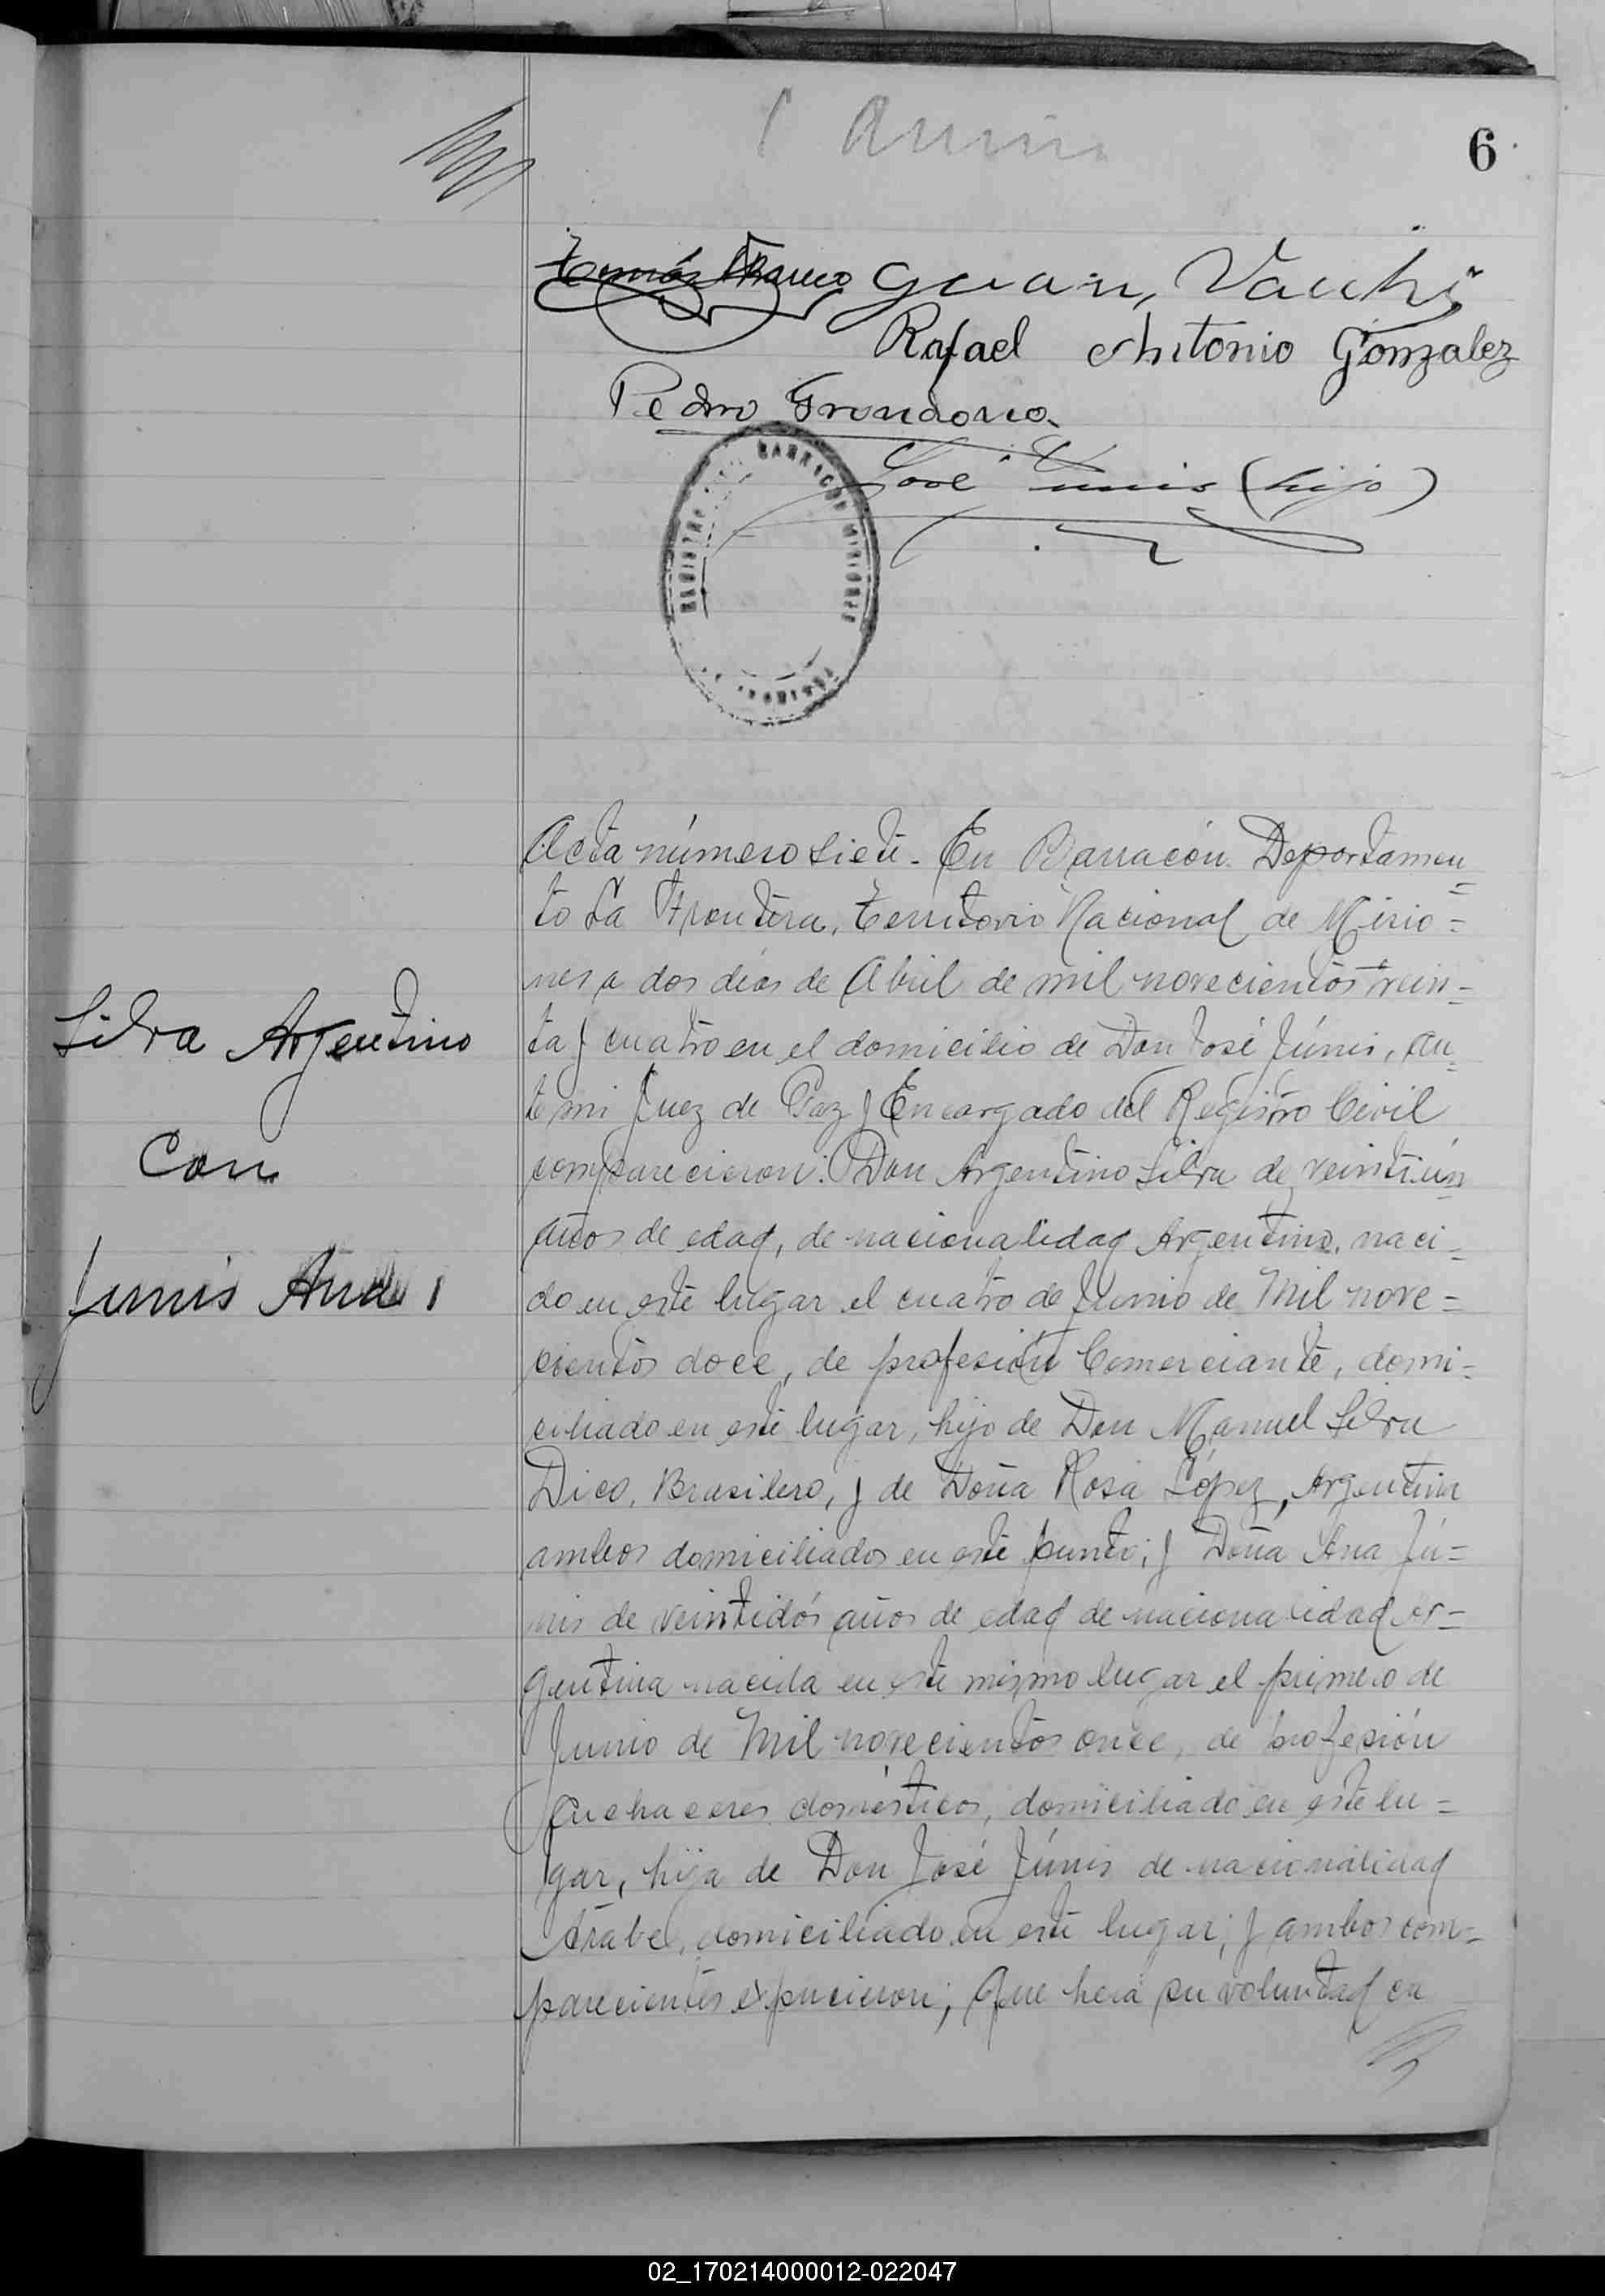 6
Tomás Franco Guan, Vacchi
Rafael Antonio Gonzalez
Pedro Grondona
José Junis (hijo)
REGISTRO BARRACON MISIONES
Acta número siete. En Barracón Departamen
to La Frontera, Territorio Nacional de Misio=
nes a dos dias de Abril de mil novecientos trein-
ta y cuatro en el domicilio de Don José Júnis, an
te mi Juez de Paz y Encargado del Registro Civil
comparecieron: Don Argentino Silva de veintiún
años de edad, de nacionalidad Argentino, naci-
do en este lugar el cuatro de Junio de Mil nove=
cientos doce, de profesión Comerciante, domi-
ciliado en este lugar, hijo de Don Manuel Silva
Dico, Brasilero, y de Doña Rosa López, Argentina
ambos domiciliados en este punto; y Doña Ana Jú=
nis de veintidós años de edad de nacionalidad Ar-
gentina nacida en este mismo lugar el primero de
Junio de Mil novecientos once, de profesión
Quehaceres domésticos, domiciliado en este lu=
gar, hija de Don José Júnis de nacionalidad
Arabe, domiciliado en este lugar; y ambos com-
parecientes expucieron; Que hera su voluntad en
Silva Argentino
Con
Junis Ana
02_170214000012-022047